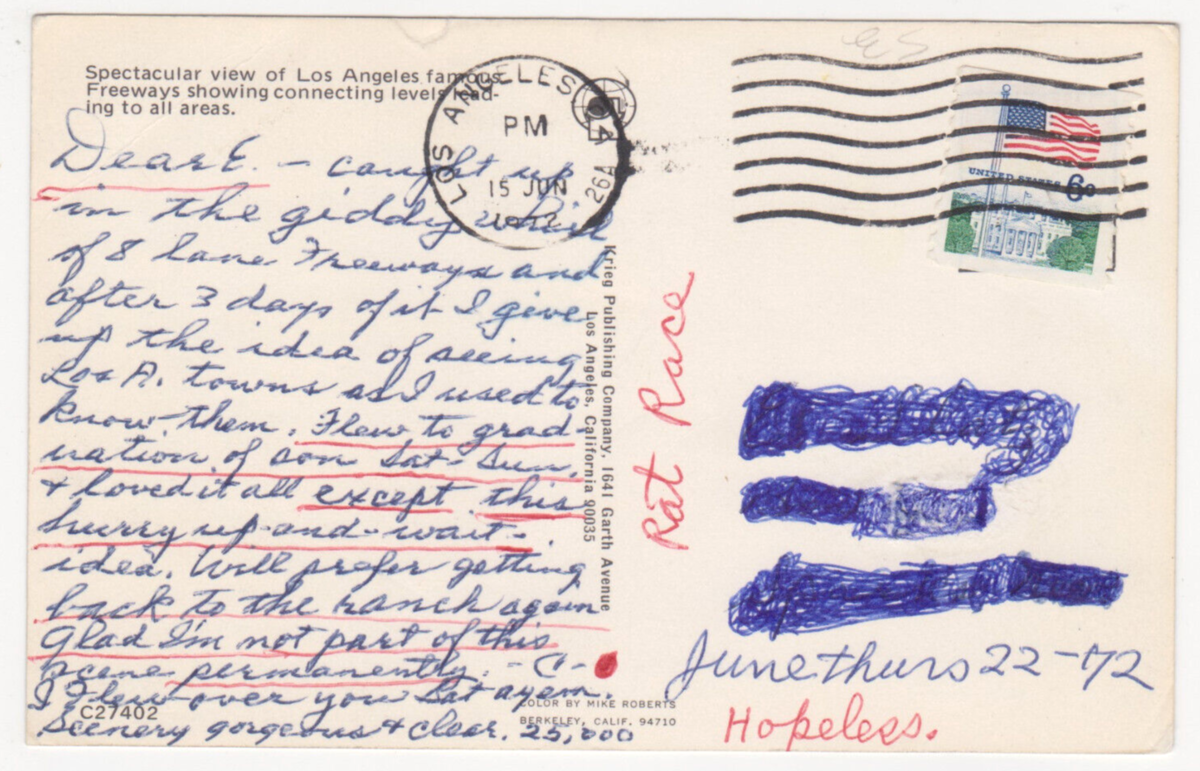 Spectacular view of Los Angeles famous
Freeways showing connecting levels lead-
ing to all areas.
LOS ANGELES CA
PM
15 JUN
1972
UNITED STATES 6¢
Dear E. – caught up
in the giddy whirl
of 8 lane Freeways and
after 3 days of it I give
up the idea of seeing
Los A. towns as I used to
know them. Flew to grad-
uation of son Sat-Sun.
& loved it all except this
hurry up-and-wait-
idea. Will prefer getting
back to the ranch again
Glad I'm not part of this
scene permanently. – C –
I flew over you Sat ayem.
Scenery gorgeous & clear. 25,000
C27402
Krieg Publishing Company, 1641 Garth Avenue
Los Angeles, California 90035
COLOR BY MIKE ROBERTS
BERKELEY, CALIF. 94710
Rat Race
June thurs 22-72
Hopeless.